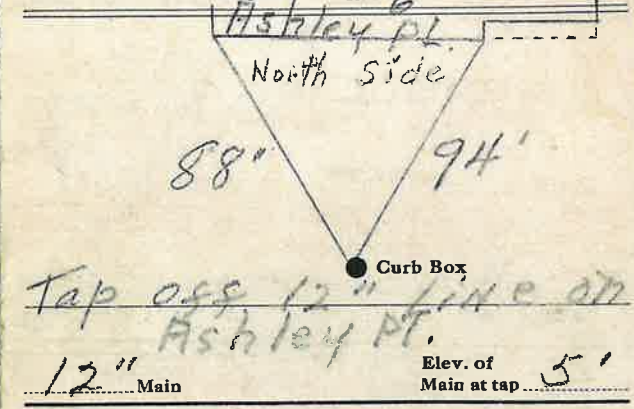 Ashley PL.
North Side
88" 94'
Curb Box
Tap off 12" line on
Ashley Pl.
12" Main Elev. of
Main at tap 5'